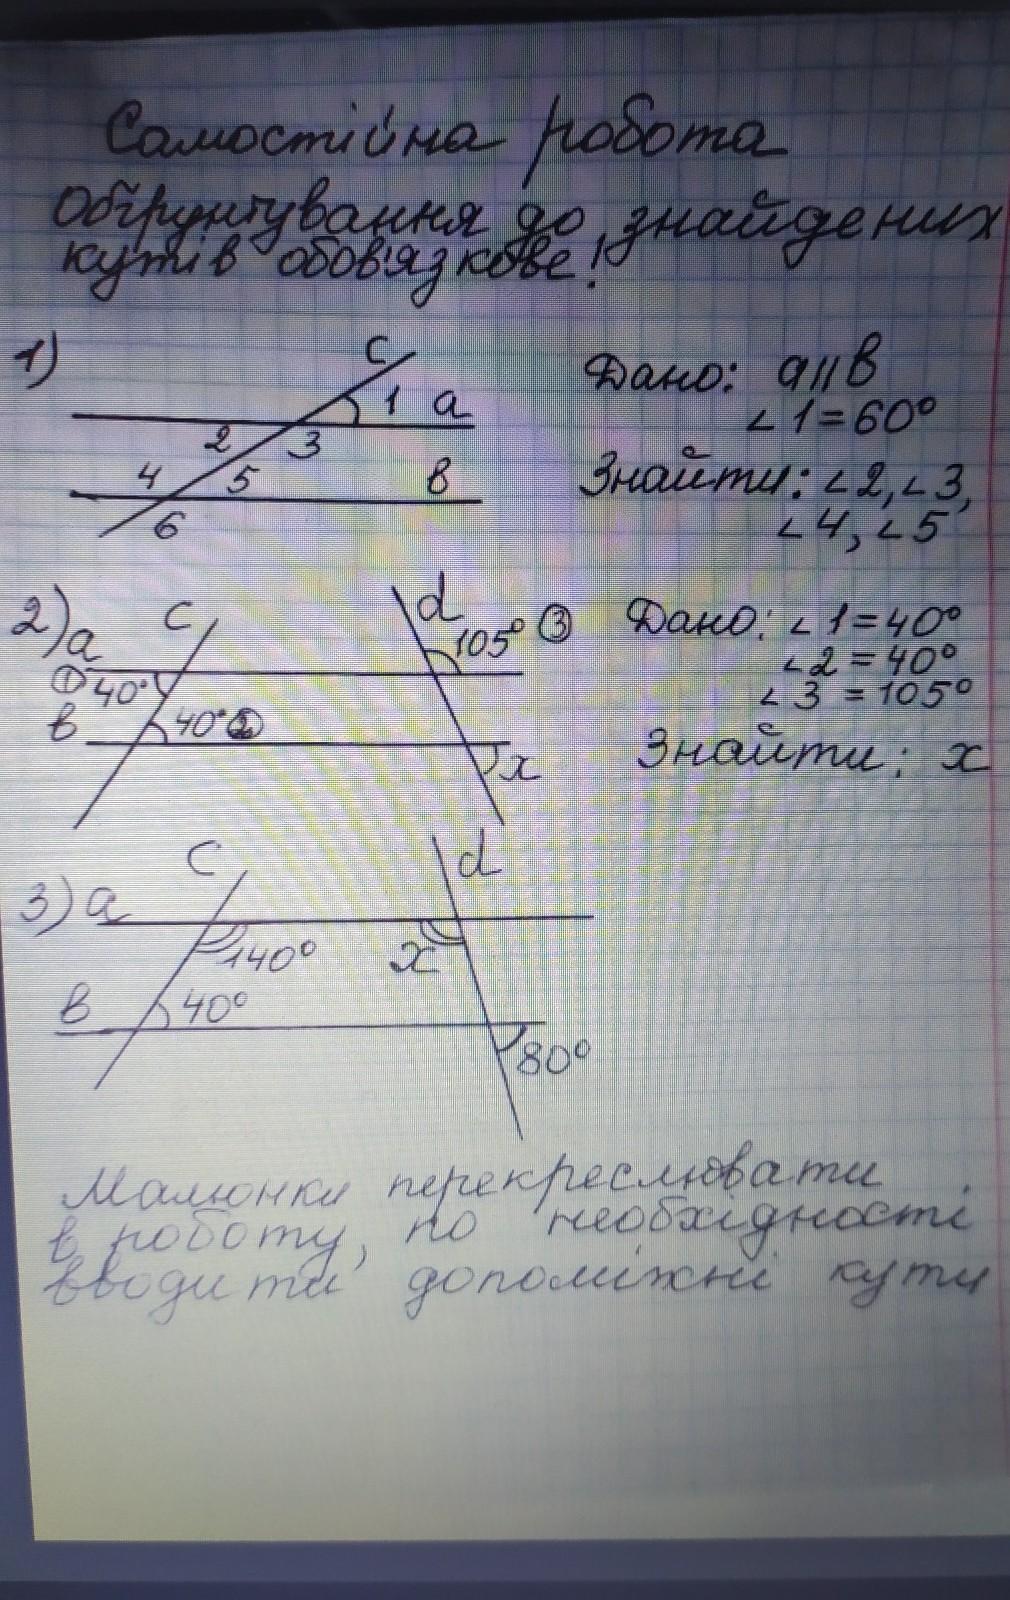 Самостійна робота
Обґрунтування до знайдених
кутів обов'язкове!
1)
c
1 a
2 3
4 5 в
6
Дано: a||в
∠1=60°
Знайти: ∠2,∠3,
∠4,∠5
2) a c d
105° ③
① 40°
в 40° ②
x
Дано: ∠1=40°
∠2=40°
∠3=105°
Знайти: x
3) a c d
140° x
в 40°
80°
Малюнки перекреслювати
в роботу, по необхідності
вводити допоміжні кути